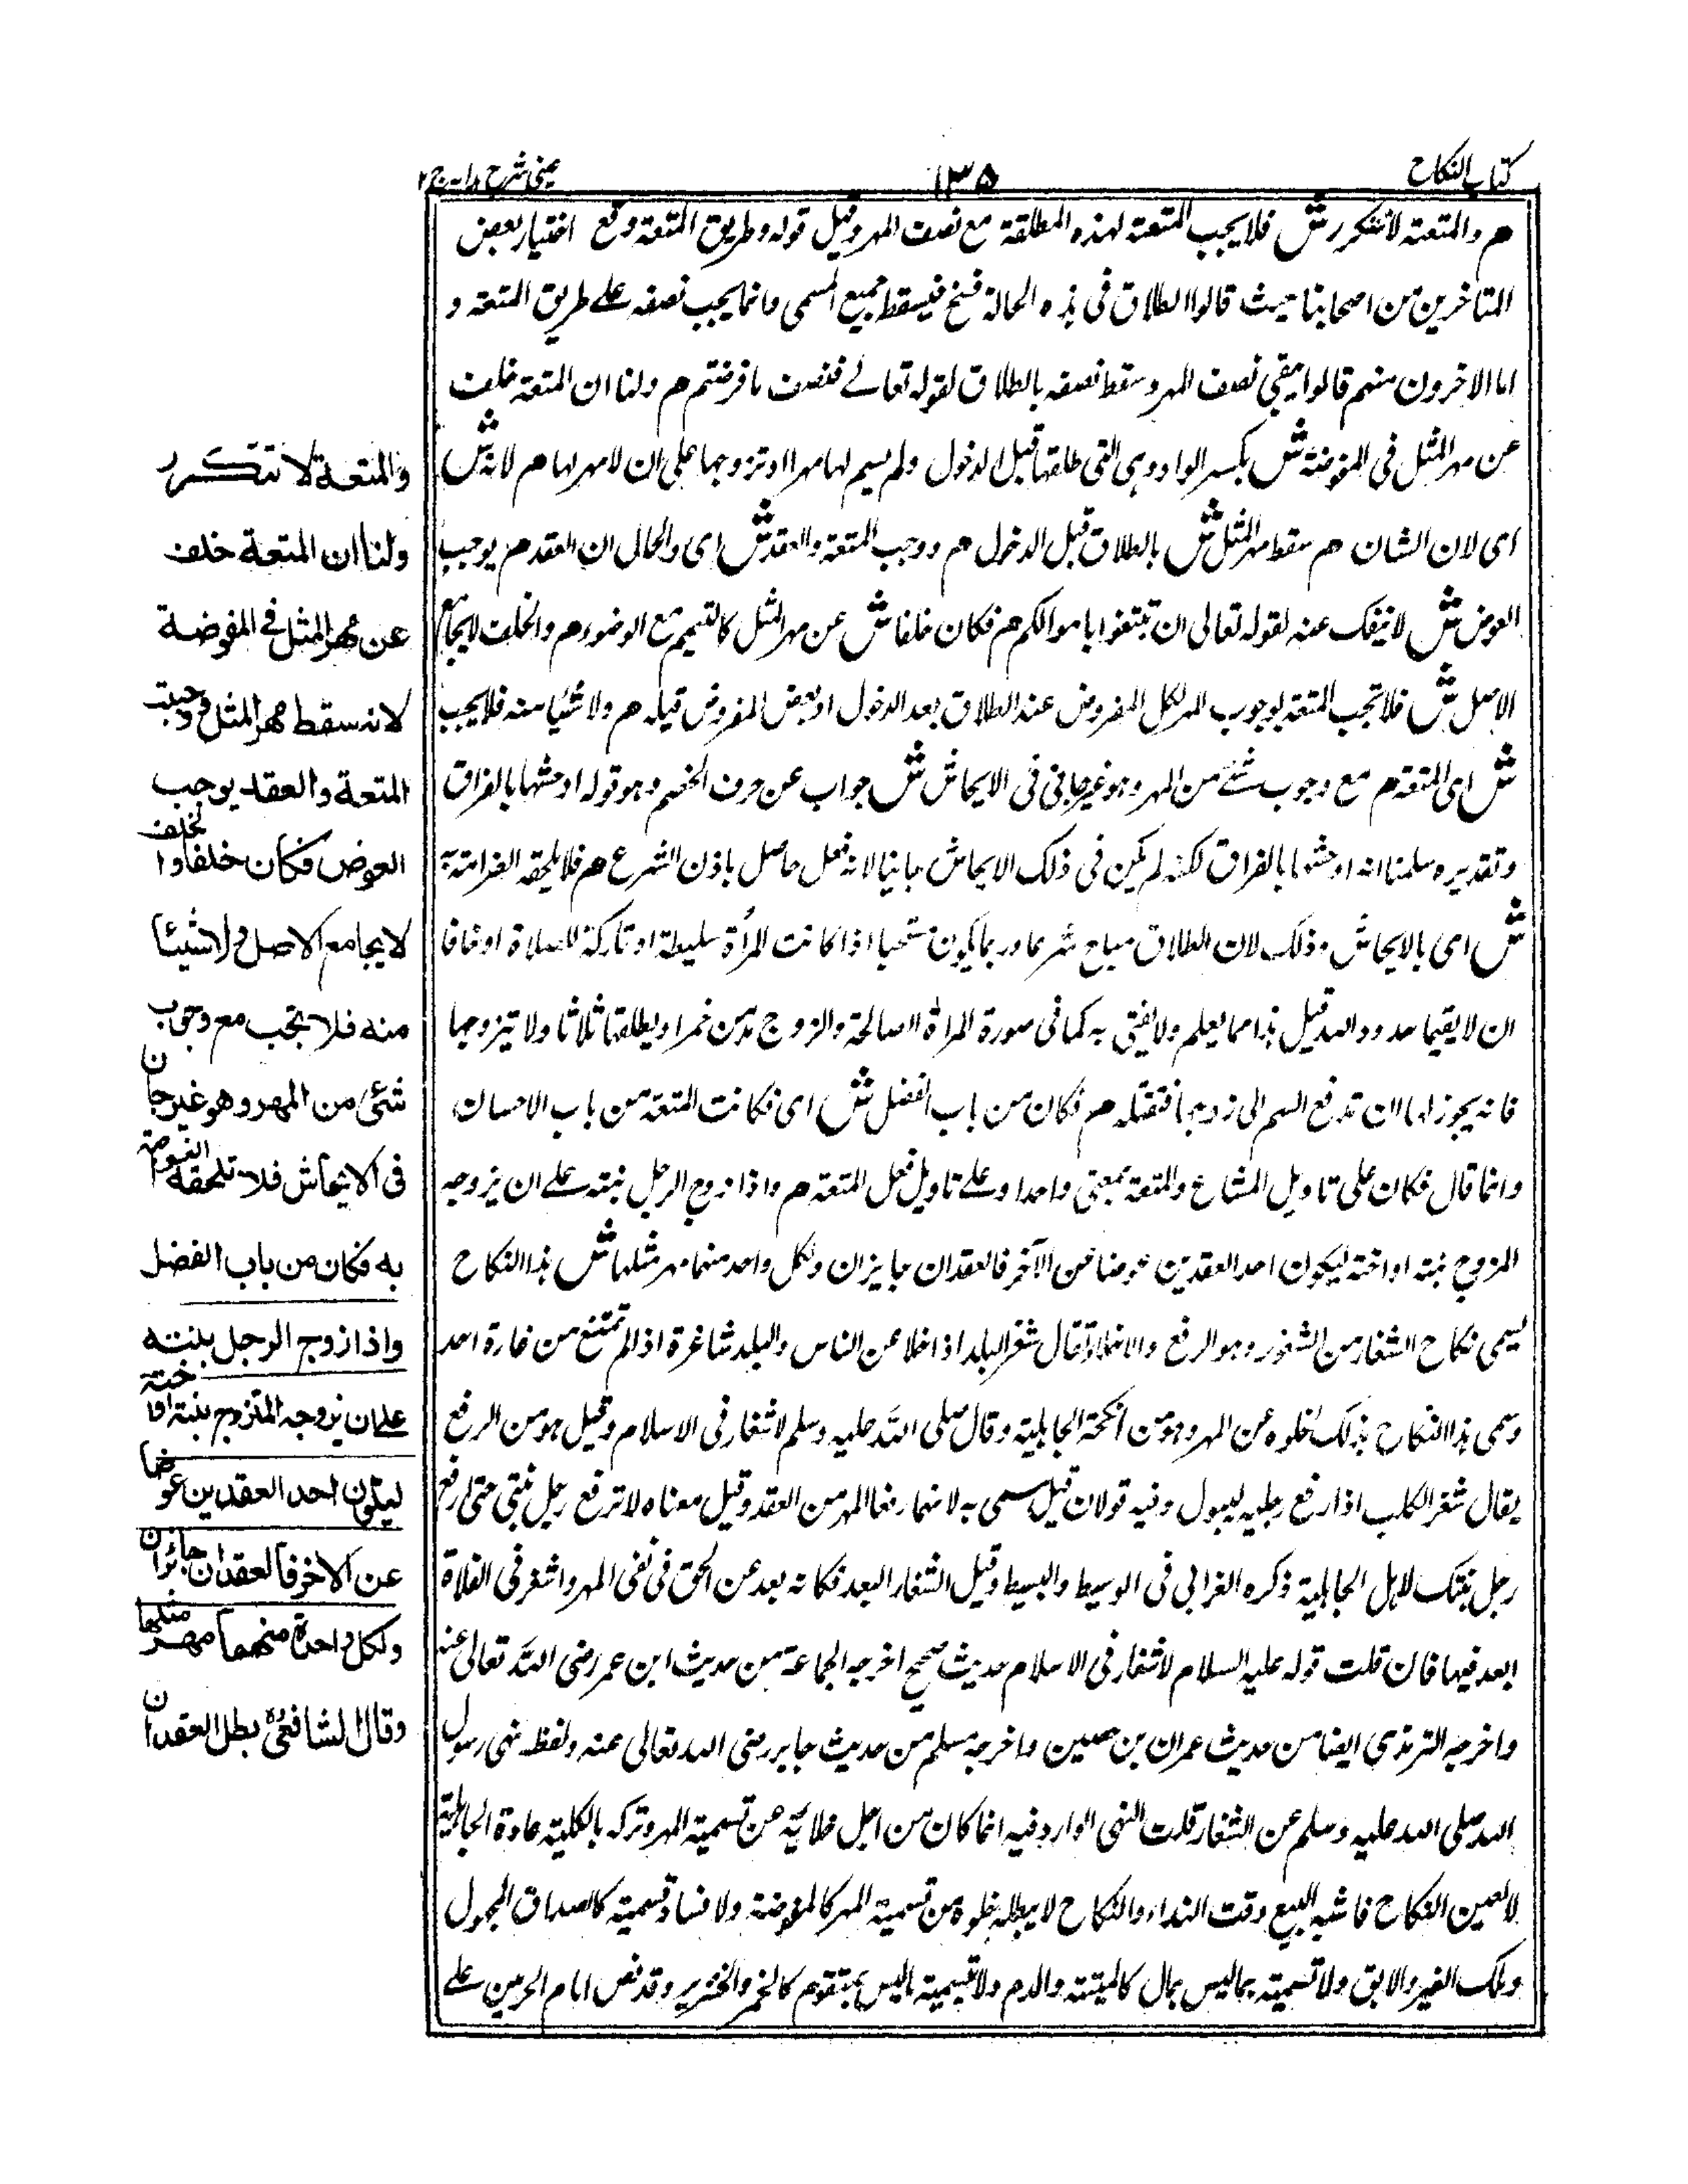 كتاب النكاح
١٣٥
عينى شرح هدايه ج٢
م والمتعة لا تتكرر ش فلا يجب المتعة لهذه المطلقة مع نصف المهر وقيل قوله وطريق المتعة وقع اختيار بعض
المتاخرين من اصحابنا حيث قالوا الطلاق فى هذه الحالة فسخ فيسقط جميع المسمى وانما يجب نصفه على طريق المتعة و
اما الاخرون منهم قالوا يبقى نصف المهر وسقط نصفه بالطلاق لقوله تعالى فنصف ما فرضتم م ولنا ان المتعة خلف
عن مهر المثل فى المفوضة ش بكسر الواو وهى التى طلقها قبل الدخول ولم يسم لها مهرا او تزوجها على ان لا مهر لها م لانه ش
اى لان الشان م سقط مهر المثل ش بالطلاق قبل الدخول م ووجب المتعة والعقد ش اى والحال ان العقد م يوجب
العوض ش لا ينفك عنه لقوله تعالى ان تبتغوا باموالكم م فكان خلفا ش عن مهر المثل كالتيمم مع الوضوء م والخلف لا يجامع
الاصل ش فلا تجب المتعة بوجوب المهر لكل المفروض عند الطلاق بعد الدخول او بعض المفروض قبله م ولا شيئا منه فلا يجب
ش اى المتعة م مع وجوب شئ من المهر وهو غير جانى فى الايحاش ش جواب عن حرف الخصم وهو قوله اوحشها بالفراق
وتقديره سلمنا انه اوحشها بالفراق لكنه لم يكن فى ذلك الايحاش جانيا لانه فعل حاصل باذن الشرع م فلا يلحقه الغرامة به
ش اى بالايحاش وذلك لان الطلاق مباح شرعا وربما يكون مستحبا اذا كانت المرأة سليطة او تاركة للصلاة او خافا
ان لا يقيما حدود الله قيل هذا مما يعلم ولا يفتى به كما فى صورة المراة الصالحة والزوج مدمن خمر او يطلقها ثلاثا ولا تيزوجها
فانه يجوز لها ان تدفع السم الى زوجها فتقتله م فكان من باب الفضل ش اى فكانت المتعة من باب الاحسان
وانما قال فكان على تاويل المشاع والمتعة بمعنى واحد او على تاويل فعل المتعة م واذا زوج الرجل بنته على ان يزوجه
المزوج بنته او اخته ليكون احد العقدين عوضا عن الآخر فالعقدان جايزان ولكل واحد منهما مهر مثلها ش هذا النكاح
يسمى نكاح الشغار من الشغور وهو الرفع والاخلاء يقال شغر البلد اذا خلا عن الناس والبلد شاغرة اذا لم تمتنع من غارة احد
وسمى هذا النكاح بذلك لخلوه عن المهر وهو من انكحة الجاهلية وقال صلى الله عليه وسلم لا شغار فى الاسلام وقيل هو من الرفع
يقال شغر الكلب اذا رفع رجليه ليبول وفيه قولان قيل سمى به لانهما رفعا المهر من العقد وقيل معناه لا ترفع رجل بنتى حتى ارفع
رجل بنتك لاهل الجاهلية ذكره الغزالى فى الوسيط والبسيط وقيل الشغار البعد فكانه بعد عن الحق فى نفى المهر واشغر فى الفلاة
ابعد فيها فان قلت قوله عليه السلام لا شغار فى الاسلام حديث صحيح اخرجه الجماعة من حديث ابن عمر رضى الله تعالى عنه
واخرجه الترمذى ايضا من حديث عمران بن حصين واخرجه مسلم من حديث جابر رضى الله تعالى عنه ولفظه نهى رسول
الله صلى الله عليه وسلم عن الشغار قلت النهى الوارد فيه انما كان من اجل خلائه عن تسمية المهر وتركه بالكلية عادة الجاهلية
لا لعين النكاح فاشبه البيع وقت النداء والنكاح لا يبطله خلوه من تسمية المهر كالمفوضة ولا فساد تسمية كالصداق المجهول
وملك الغير والابق ولا تسمية بما ليس بمال كالميتة والدم ولا تسمية ما ليس بمتقوم كالخمر والخنزير وقد نص امام الحرمين على
والمتعة لا تتكرر
ولنا ان المتعة خلف
عن مهر المثل فى المفوضة
لانه سقط مهر المثل ووجبت
المتعة والعقد يوجب
العوض فكان خلفا والخلف
لا يجامع الاصل ولا شيئا
منه فلا تجب مع وجوب
شئى من المهر وهو غير جان
فى الايحاش فلا تلحقه الغرامة
به فكان من باب الفضل
واذا زوج الرجل بنته
على ان يزوجه المتزوج بنته او اخته
ليكون احد العقدين عوضا
عن الاخر فالعقدان جائزان
ولكل واحدة منهما مهر مثلها
وقال الشافعىؒ بطل العقدان